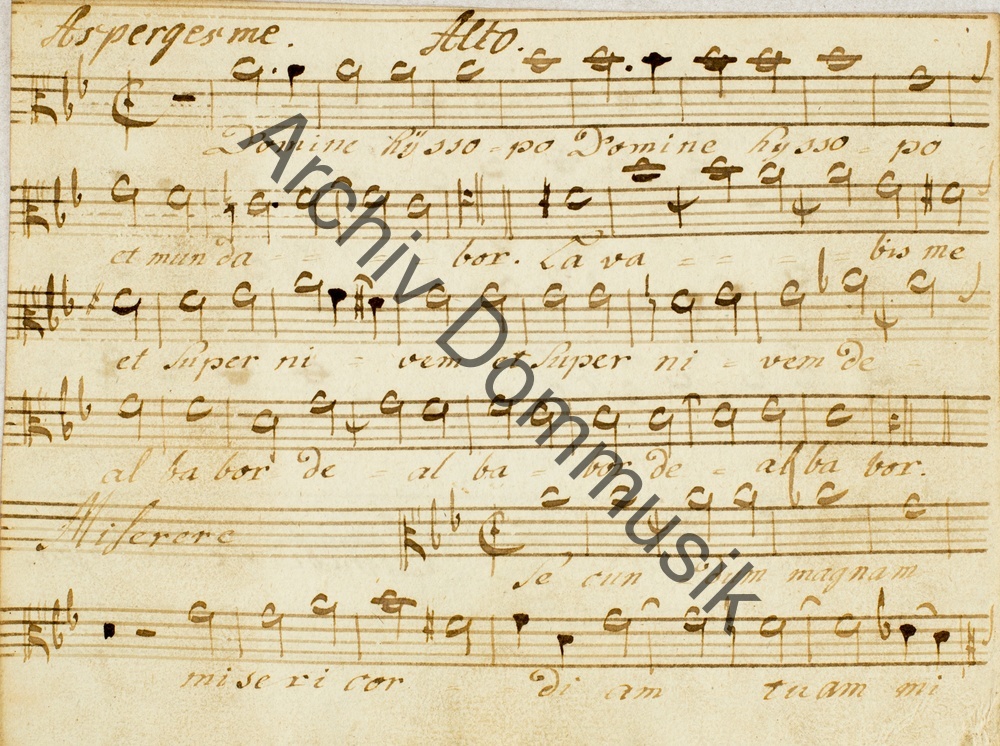 Asperges me. Alto.
Domine hÿsso - po Domine hysso - po
et mun da - - - - bor. La va - - - - bis me
et super ni - vem et super ni - vem de -
al ba bor de - al ba - bor de - al ba bor.
Miserere
Se cun magnam
mi se ri cor - di am tu am mi
Archiv Dommusik